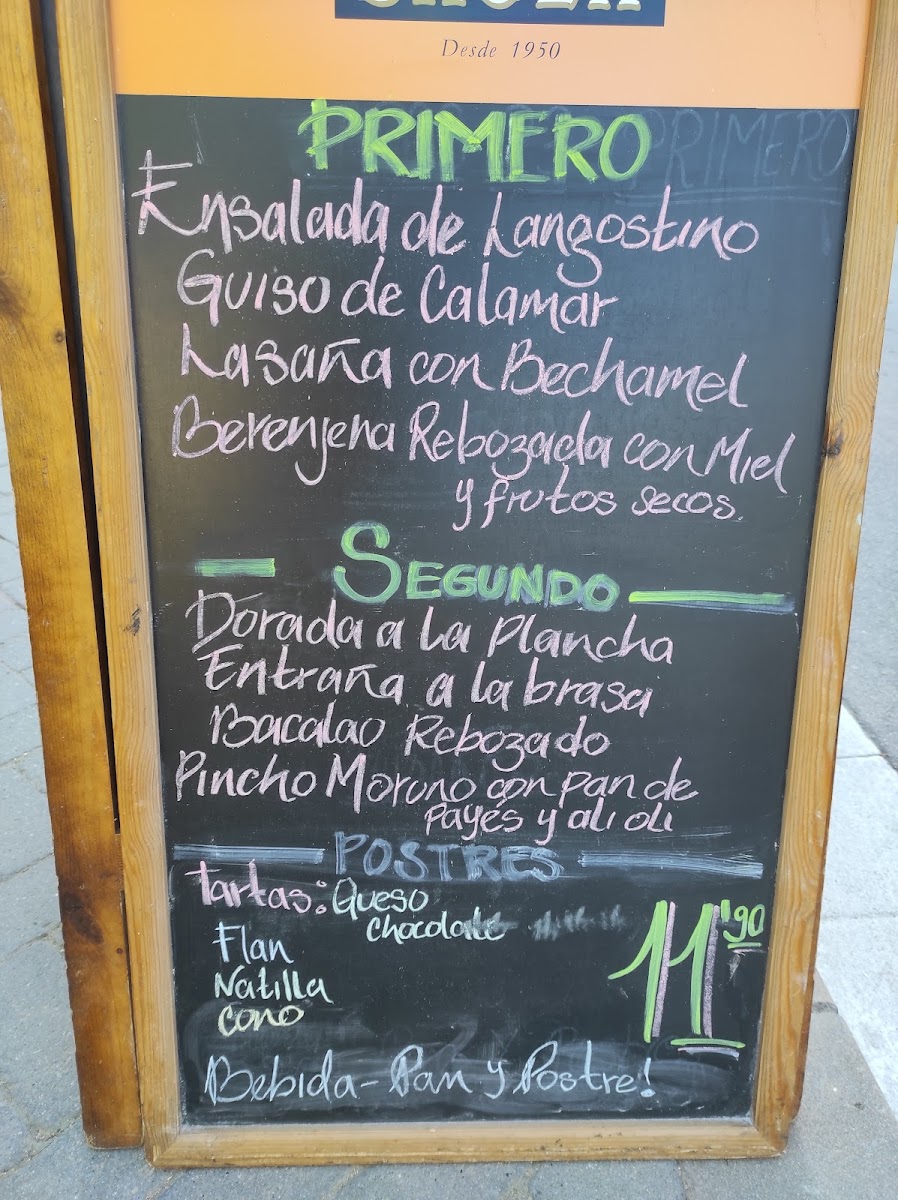 Desde 1950
PRIMERO
Ensalada de Langostino
Guiso de Calamar
Lasaña con Bechamel
Berenjena Rebozada con Miel
y frutos secos
SEGUNDO
Dorada a la Plancha
Entraña a la brasa
Bacalao Rebozado
Pincho Moruno con pan de
payés y ali oli
POSTRES
Tartas: Queso
chocolate
Flan
Natilla
cono
11'90
Bebida - Pan y Postre!